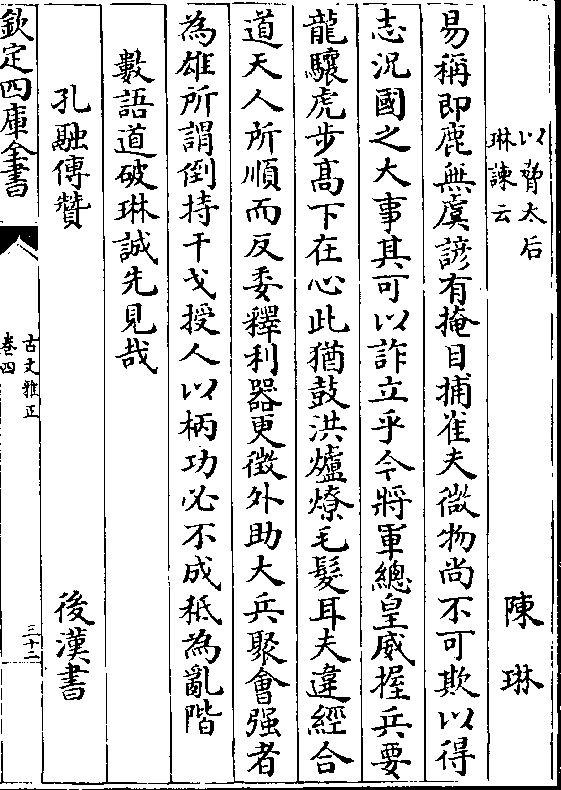 以脅太后
琳諫云
陳琳
易稱即鹿無虞諺有掩目捕雀夫微物尚不可欺以得
志況國之大事其可以詐立乎今將軍總皇威握兵要
龍驤虎步髙下在心此猶鼓洪爐燎毛髮耳夫違經合
道天人所順而反委釋利器更徵外助大兵聚會强者
為雄所謂倒持干戈授人以柄功必不成秪為亂階
數語道破琳誠先見哉
孔融傳贊
後漢書
欽定四庫全書
古文雅正
卷四
三十二